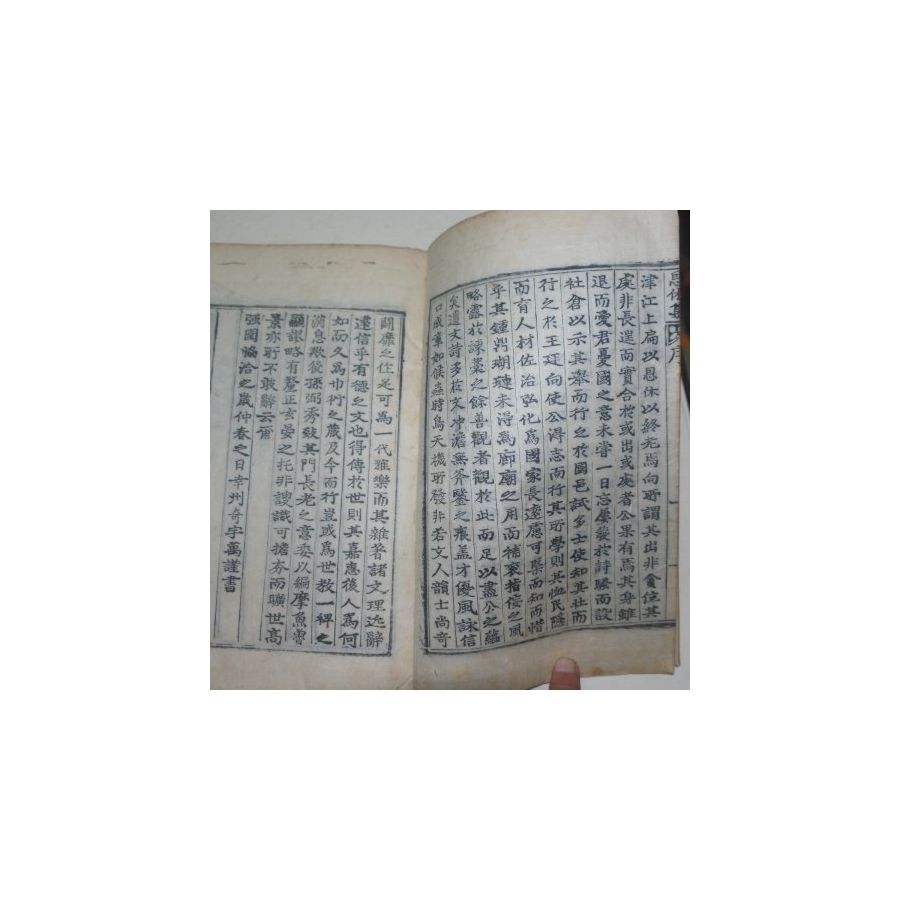 息休集序
津江上扁以息休以終老焉向所謂其出非貪位其
處非長逞而實合於或出或處者公果有焉其身雖
退而愛君憂國之意未嘗一日高屢發於詩騷而設
社倉以示其舉而行之於國邑試多士使知其社而
行之於王廷向使公得志而行其所學則其恤民隱
而有人材佐治弘化爲國家長遠慮可槩而知而惜
乎其鍾鼎瑚璉未得爲廊廟之用而補袞指佞之風
略露於諫藁之餘善觀者觀於此而足以盡公之蘊
矣遺文詩多於文冲澹無斧鑿之痕盖才優風詠信
口成章如候蟲時鳥天機所發非若文人韻士尚奇
鬪靡之作是可爲一代雅樂而其雜著諸文理近辭
達信乎有德之文也得傳於世則其嘉惠後人爲何
如而久爲巾衍之藏及今而行豈或爲世教一裨之
消息歟後孫弼秀致其門長老之意委以編摩魚魯
顧謬略有釐正玄晏之托非謏識可擔夯而曠世高
景亦所不敢辭云爾
强圉協洽之歲仲春之日幸州奇宇萬謹書